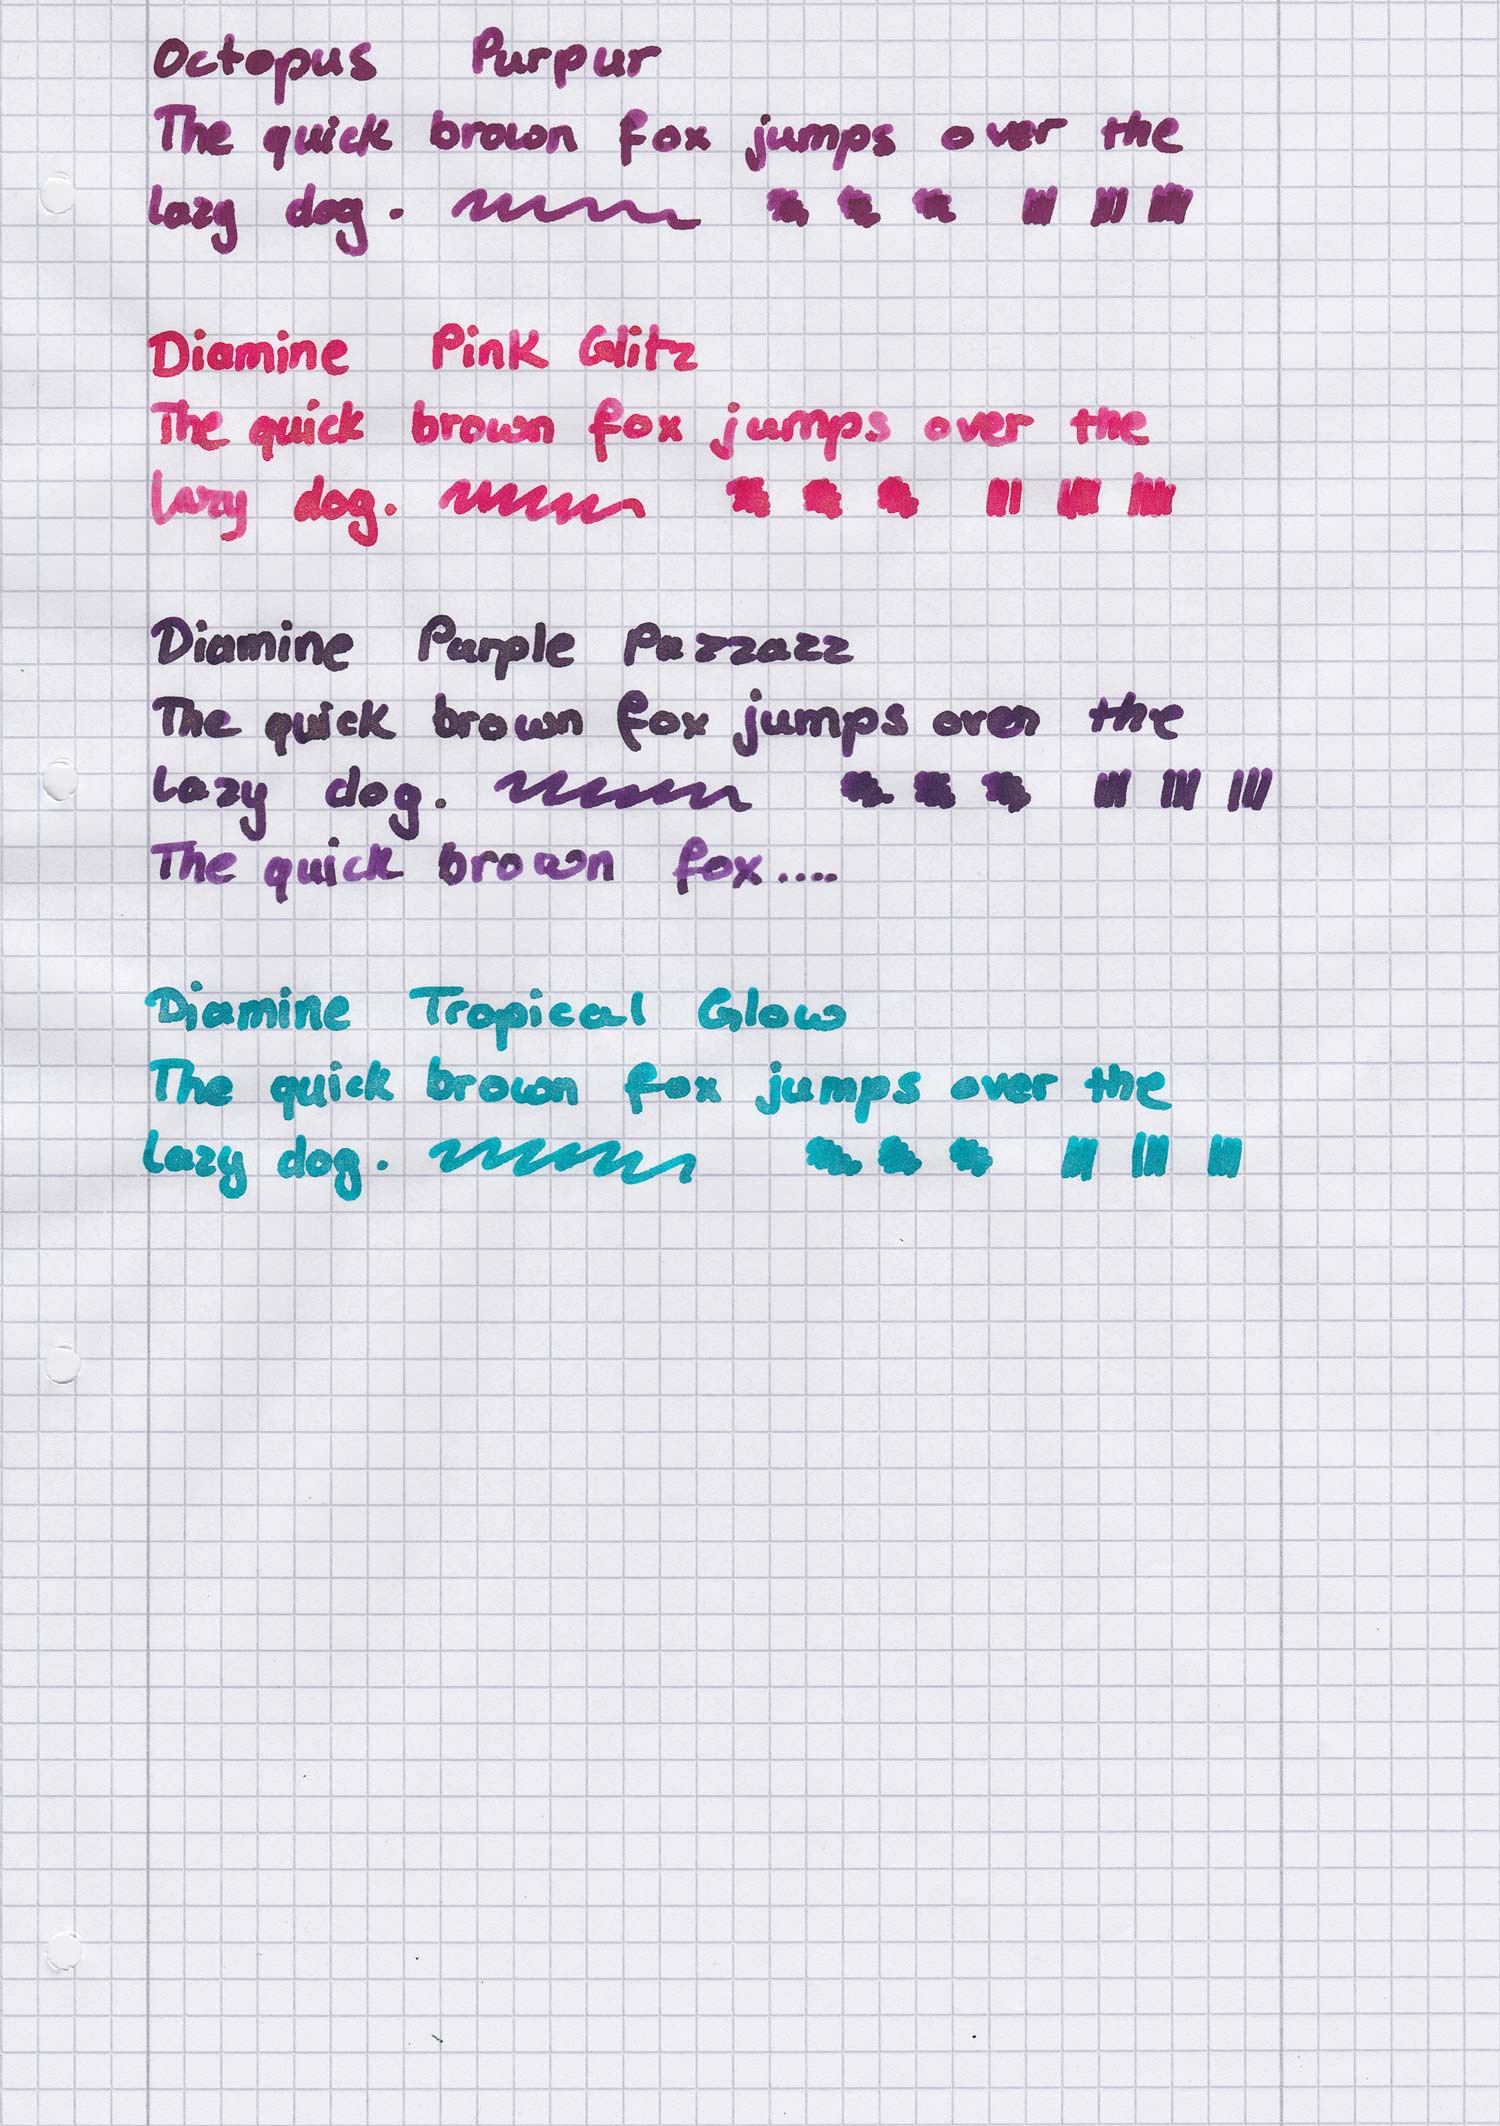 Octopus Purpur
The quick brown fox jumps over the
lazy dog.
Diamine Pink Glitz
The quick brown fox jumps over the
lazy dog.
Diamine Purple Pazzazz
The quick brown fox jumps over the
lazy dog.
The quick brown fox.....
Diamine Tropical Glow
The quick brown fox jumps over the
lazy dog.